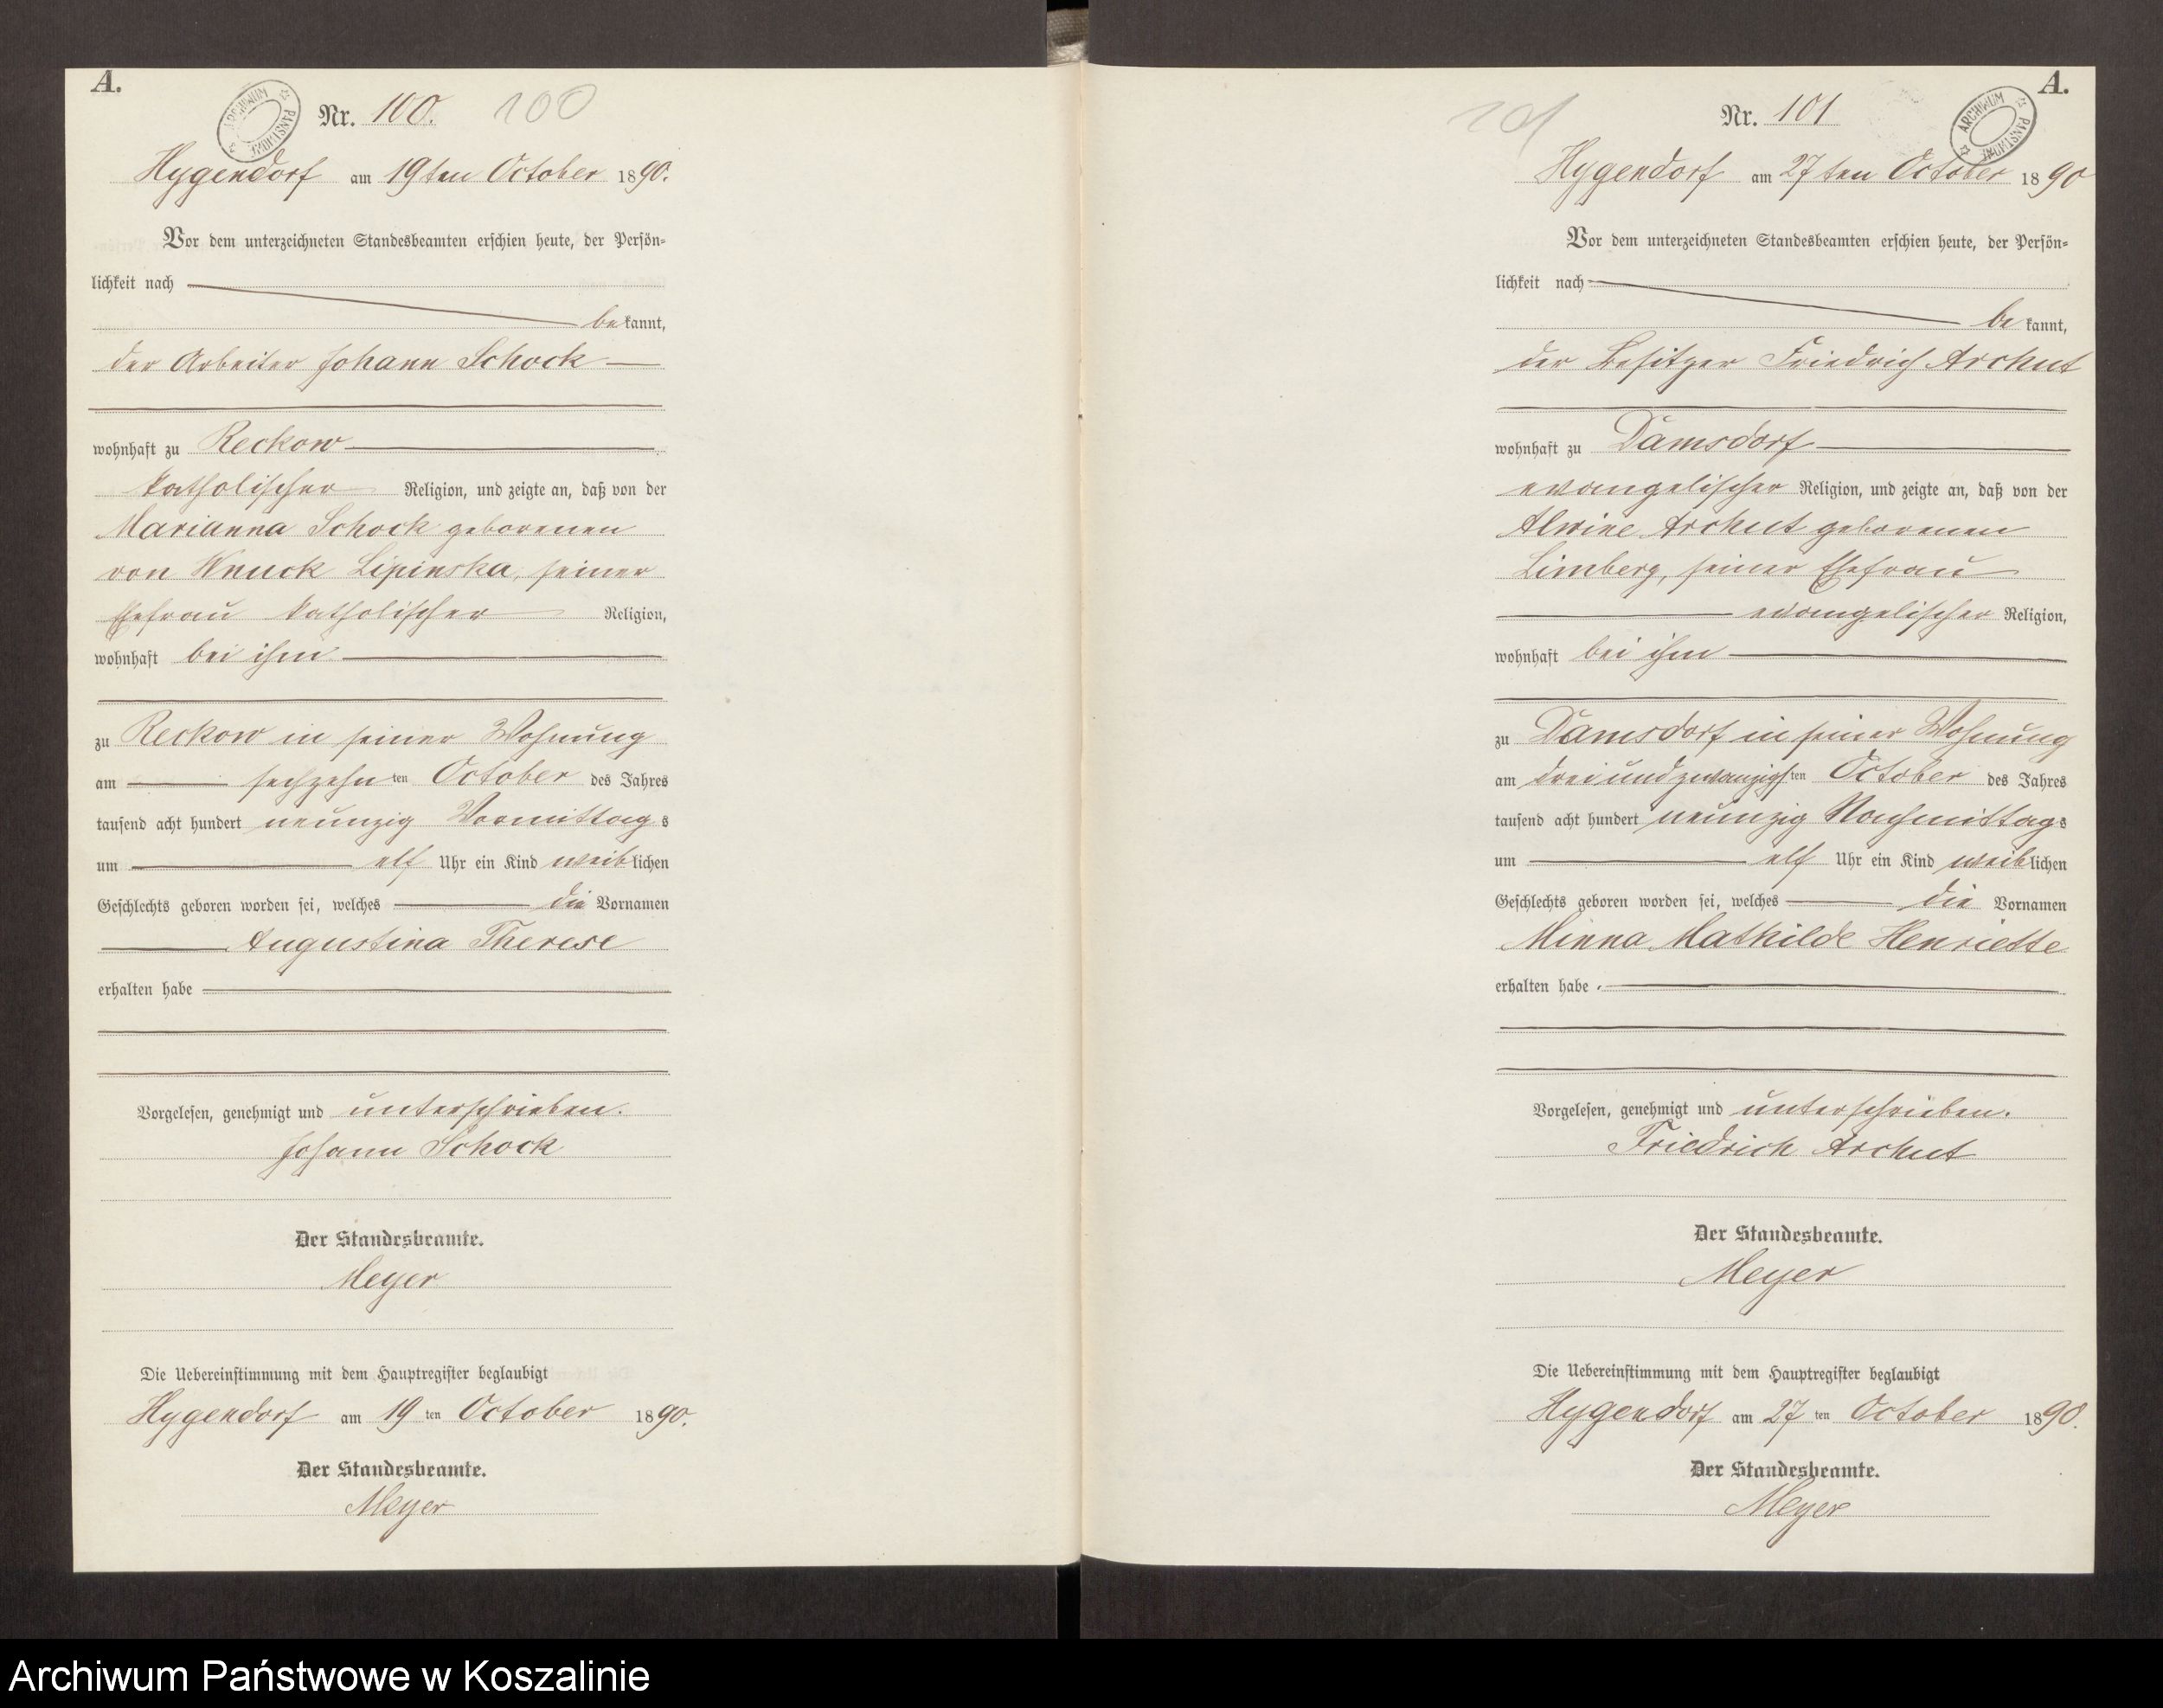 A.
ARCHIWUM PAŃSTWOWE
Nr. 100. 100
Hygendorf am 19ten October 1890.
Vor dem unterzeichneten Standesbeamten erschien heute, der Persön=
lichkeit nach
bekannt,
der Arbeiter Johann Schock
wohnhaft zu Reckow
katholischer Religion, und zeigte an, daß von der
Marianna Schock geborenen
von Wnuck Lipinska, seiner
Ehefrau katholischer Religion,
wohnhaft bei ihm
zu Reckow in seiner Wohnung
am sechzehnten October des Jahres
tausend acht hundert neunzig Vormittags
um elf Uhr ein Kind weiblichen
Geschlechts geboren worden sei, welches die Vornamen
Augustina Therese
erhalten habe
Vorgelesen, genehmigt und unterschrieben.
Johann Schock
Der Standesbeamte.
Meyer
Die Uebereinstimmung mit dem Hauptregister beglaubigt
Hygendorf am 19ten October 1890.
Der Standesbeamte.
Meyer
A.
ARCHIWUM PAŃSTWOWE
101 Nr. 101
Hygendorf am 27ten October 1890
Vor dem unterzeichneten Standesbeamten erschien heute, der Persön=
lichkeit nach
bekannt,
der Besitzer Friedrich Archut
wohnhaft zu Damsdorf
evangelischer Religion, und zeigte an, daß von der
Alwine Archut geborenen
Limberg, seiner Ehefrau
evangelischer Religion,
wohnhaft bei ihm
zu Damsdorf in seiner Wohnung
am dreiundzwanzigsten October des Jahres
tausend acht hundert neunzig Nachmittags
um elf Uhr ein Kind weiblichen
Geschlechts geboren worden sei, welches die Vornamen
Minna Mathilde Henriette
erhalten habe.
Vorgelesen, genehmigt und unterschrieben.
Friedrich Archut
Der Standesbeamte.
Meyer
Die Uebereinstimmung mit dem Hauptregister beglaubigt
Hygendorf am 27ten October 1890.
Der Standesbeamte.
Meyer
Archiwum Państwowe w Koszalinie